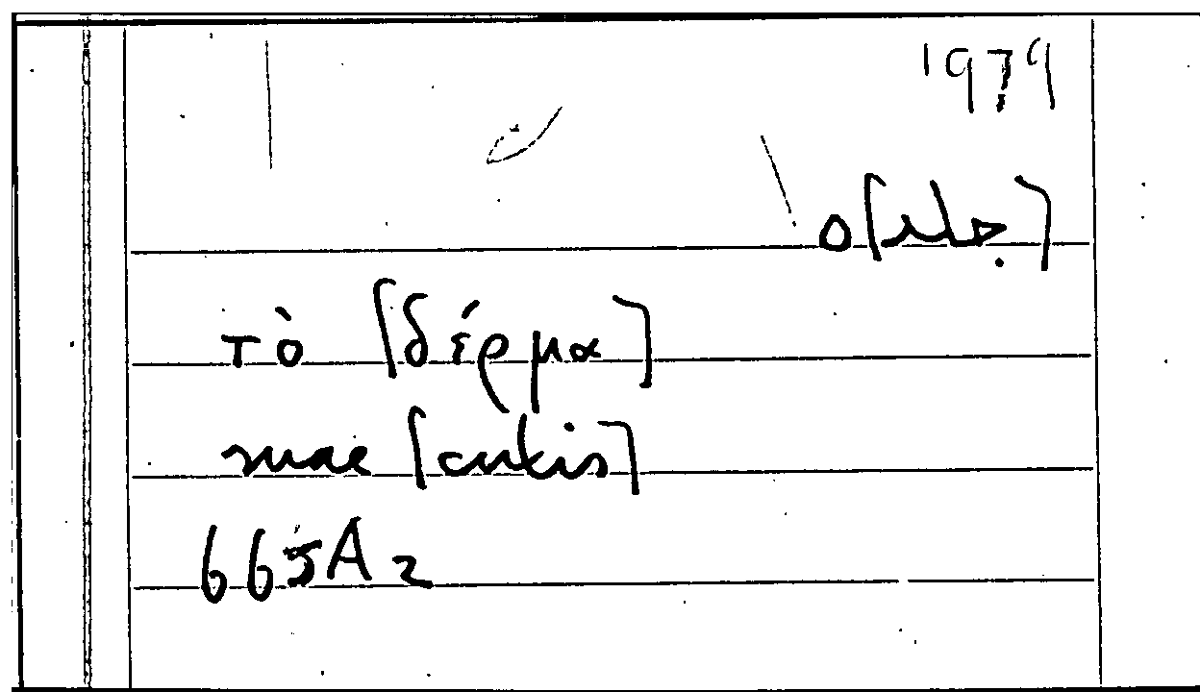 1979
[جلد]ه
τὸ [δέρμα]
suae [cutis]
665A2